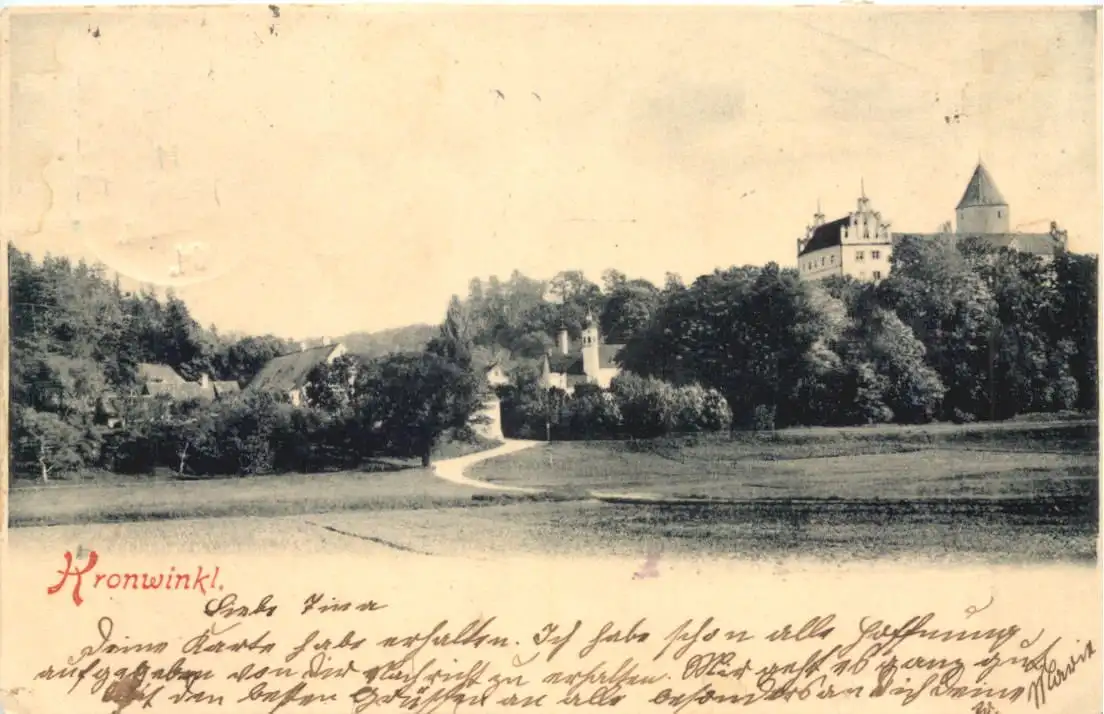 Kronwinkl.
Liebe Tina
Deine Karte habe erhalten. Ich habe schon alle Hoffnung
aufgegeben von Dir Nachricht zu erhalten. Mir geht es ganz gut
Mit den besten Grüßen an alle besonders an Dich Deine